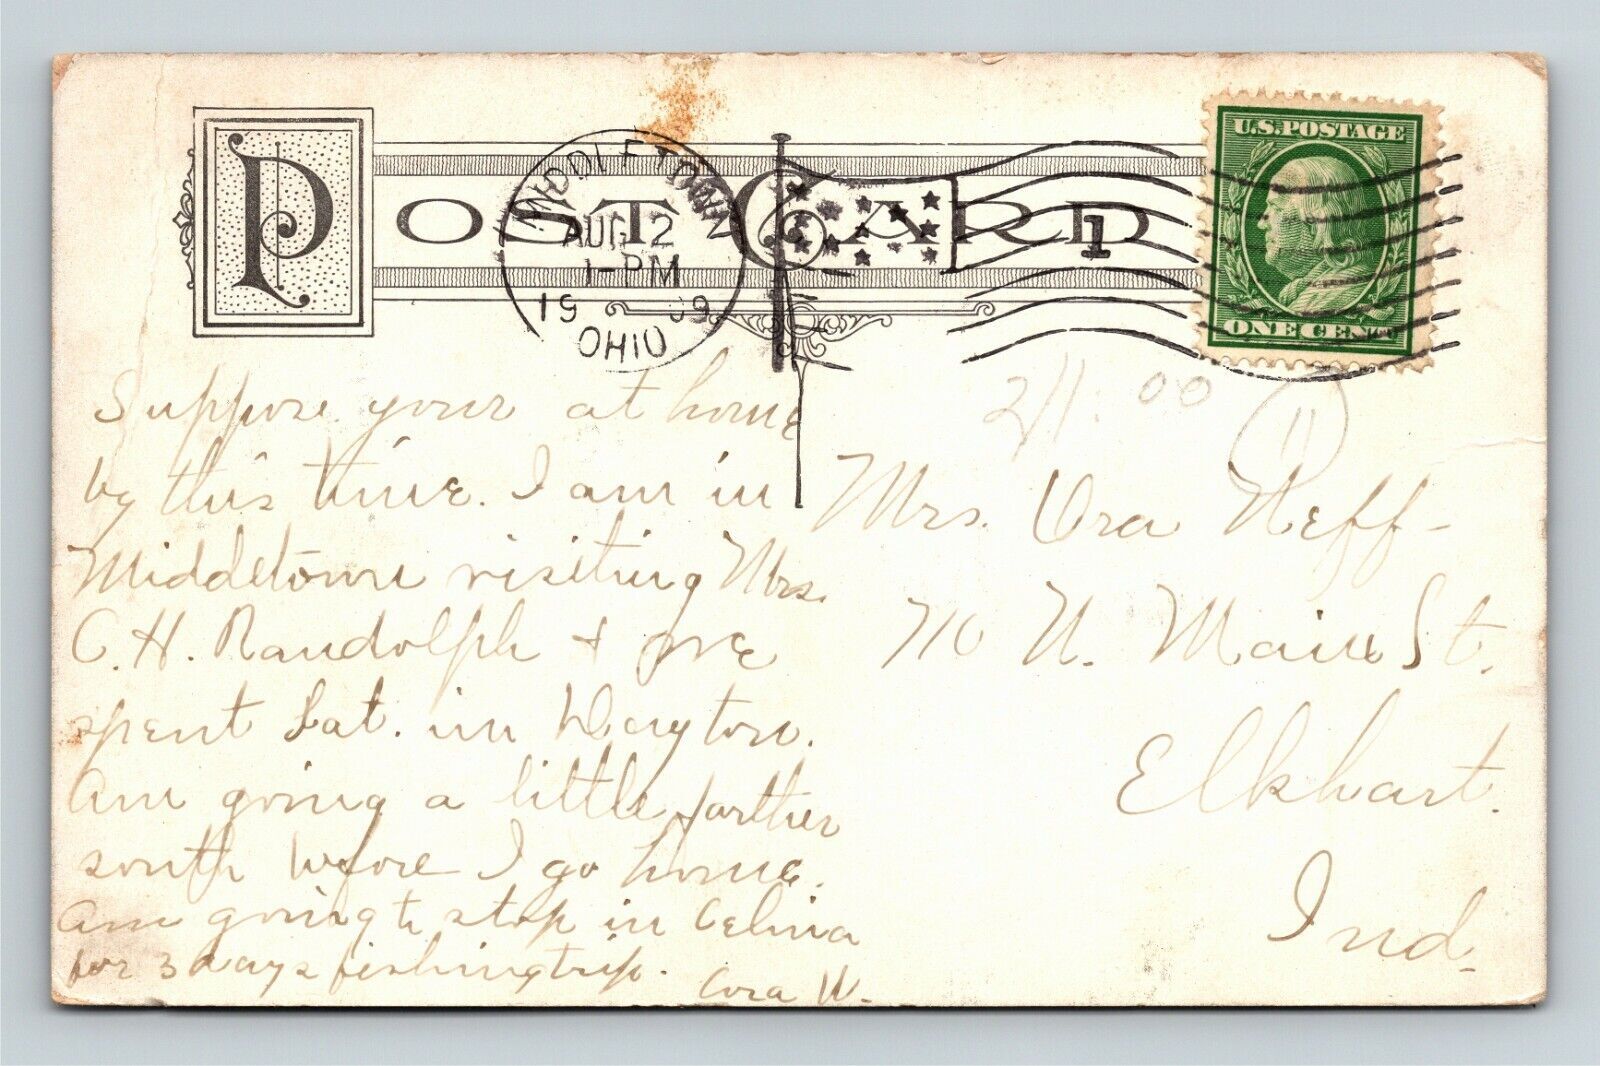 POST CARD
MIDDLETOWN
AUG 2
1-PM
1909
OHIO
1
U.S.POSTAGE
ONE CENT
Suppose your at home
by this time. I am in
Middletown visiting Mrs.
C. H. Randolph & we
spent Sat. in Dayton.
Am going a little farther
south before I go home.
Am going to stop in Celina
for 3 days fishing trip.
Cora W.
11
Mrs. Ora Neff-
710 N. Main St.
Elkhart.
Ind.